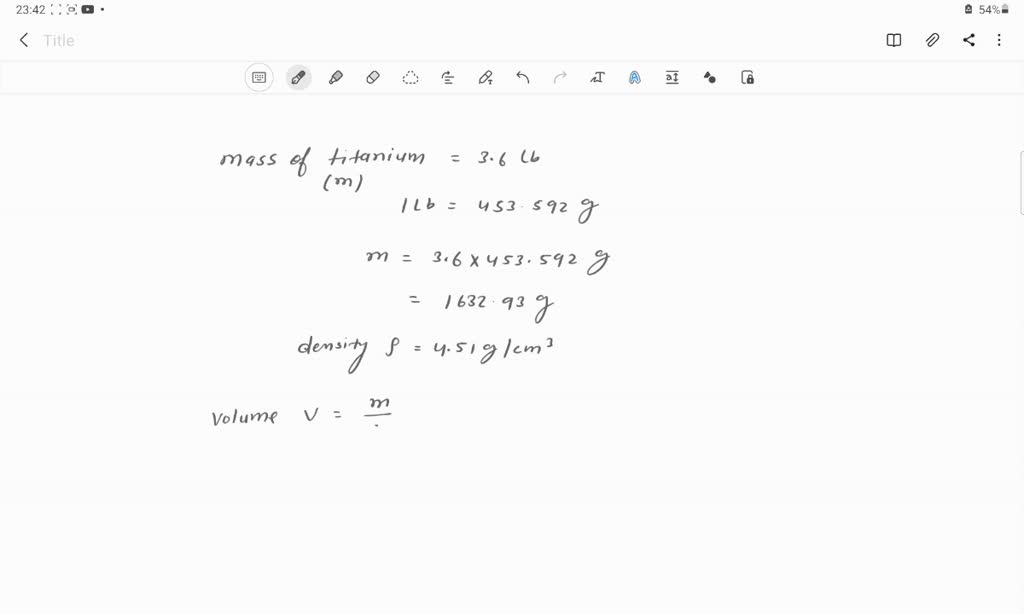 23:42 54%
Title
mass of titanium = 3.6 lb
(m)
1 Lb = 453.592 g
m = 3.6 x 453.592 g
= 1632.93 g
density ρ = 4.51 g/cm³
volume V = m